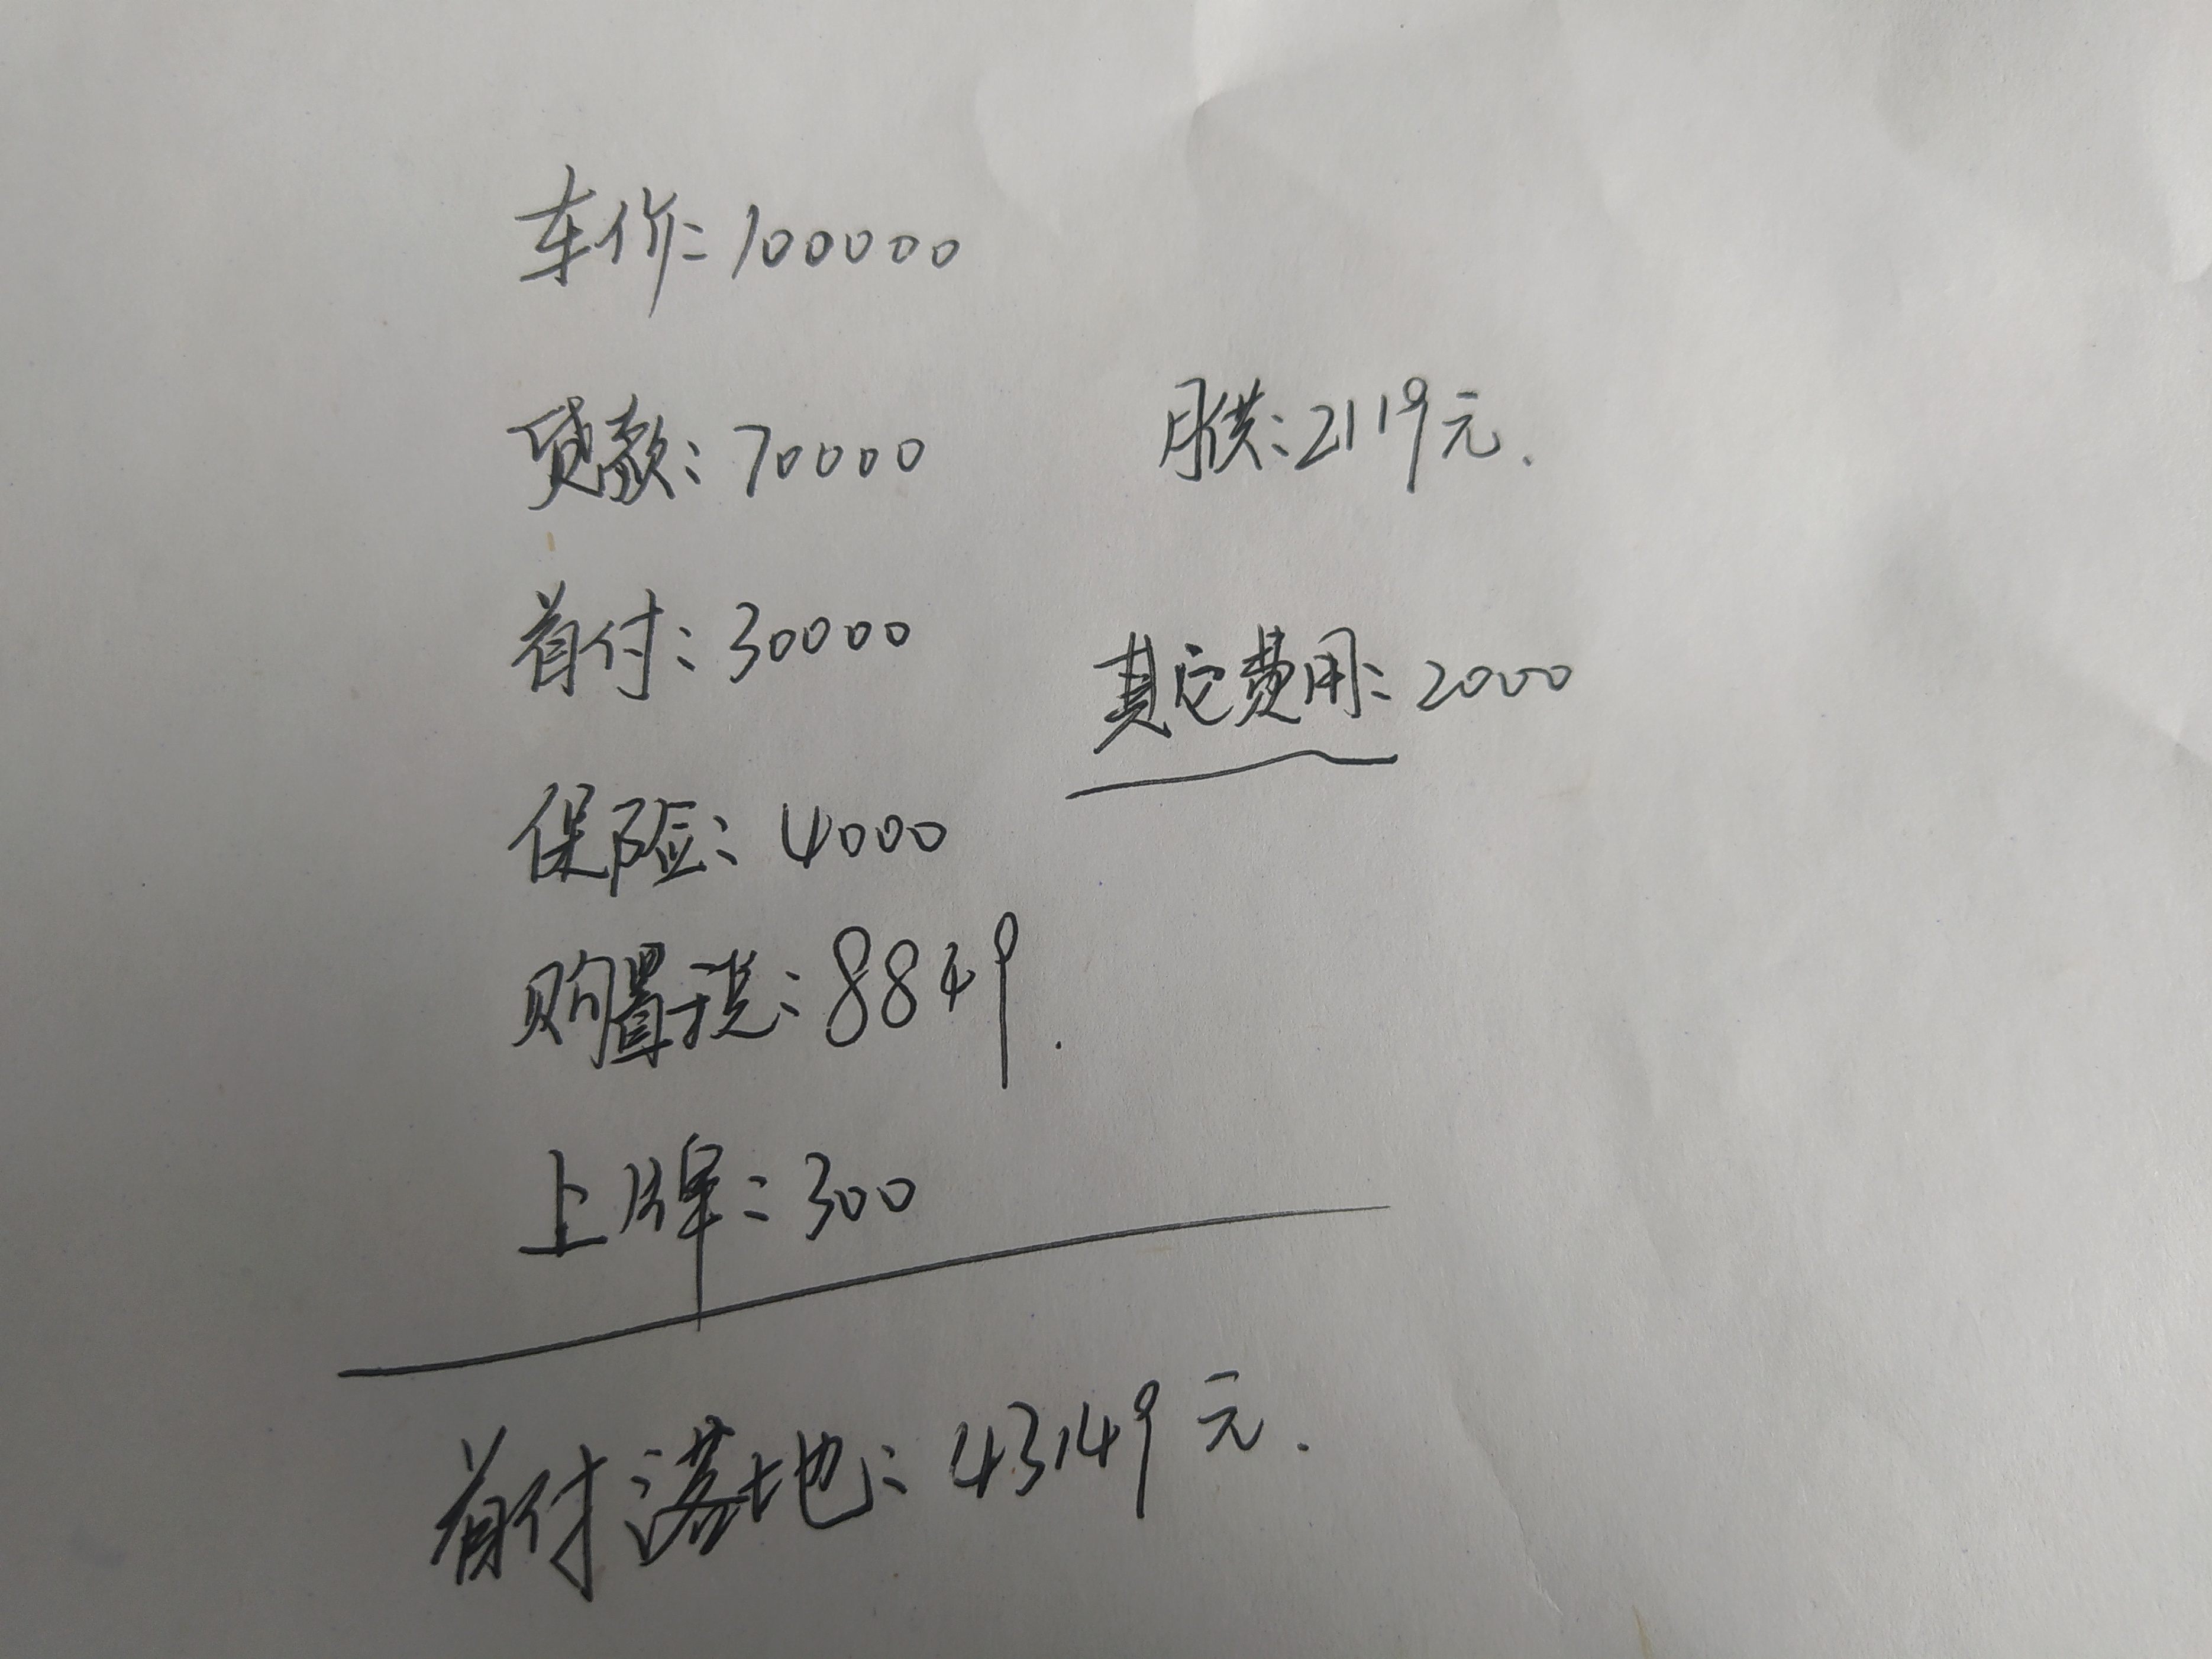 车价：100000
贷款：70000
月供：2119元.
首付：30000
其它费用：2000
保险：4000
购置税：8849.
上牌：300
首付落地：43149元.